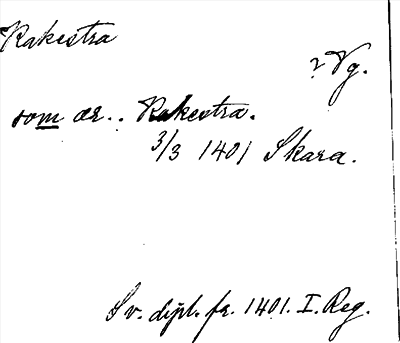 Rakestra
? Vg.
som ær .. Rakestra.
3/3 1401 Skara.
Sv. dipl. fr. 1401. I. Reg.